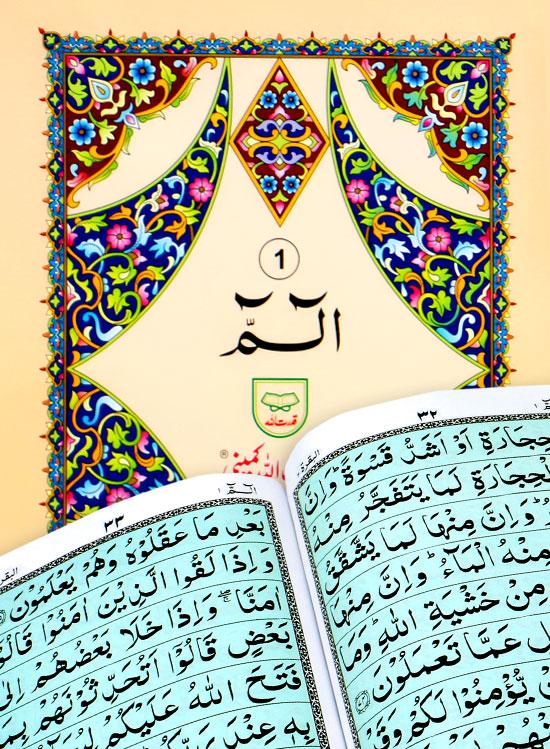 1
الٓمّٓ
قدرت اللہ
کمپنی
٣٢
حجارة او اشد قسوة وان
لحجارة لما يتفجر منه
وان منها لما يشقق
منه الماء وان منها
من خشية الله وما
عما تعملون
يؤمنوا لكم وق
٣٣
الٓمّٓ ١
بعد ما عقلوه وهم يعلمون
واذا لقوا الذين امنوا قالو
امنا واذا خلا بعضهم الى
بعض قالوا اتحدثونهم بم
فتح الله عليكم
به عند